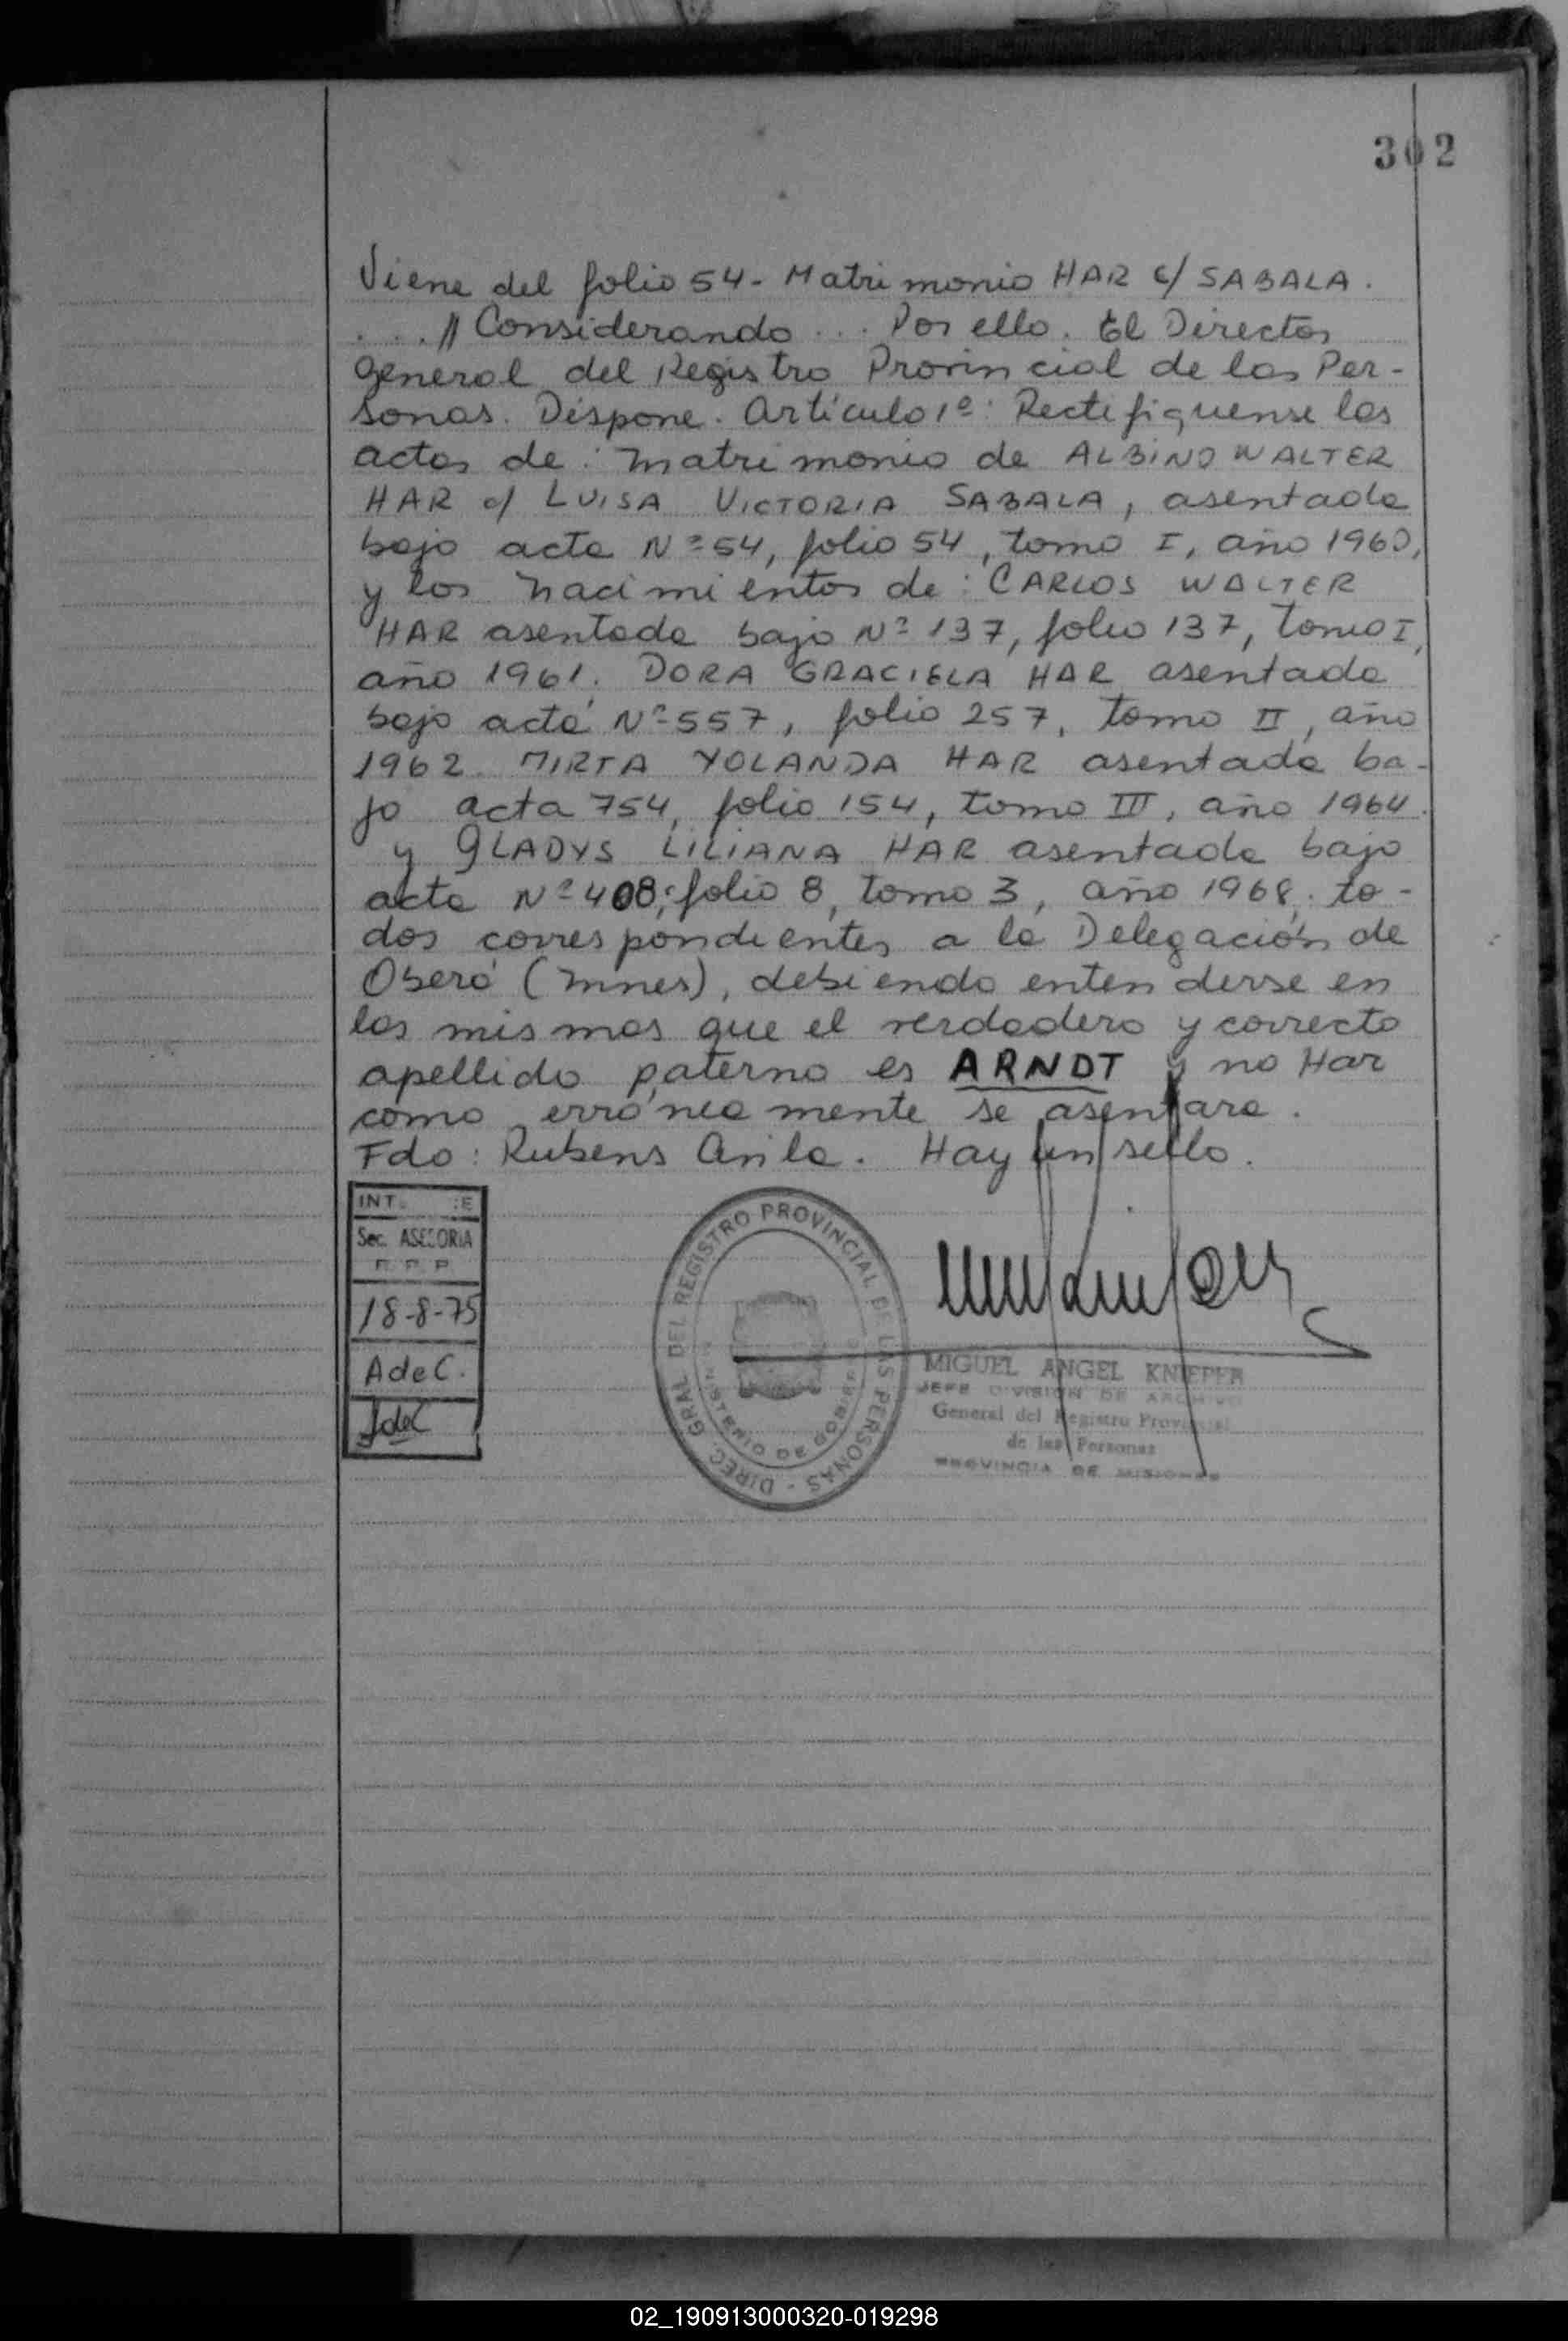 302
Viene del folio 54 - Matrimonio HAR c/ SABALA.
. . . // Considerando ... Por ello. El Director
General del Registro Provincial de las Per-
sonas. Dispone. Artículo 1º: Rectifíquense las
actas de: Matrimonio de ALBINO WALTER
HAR c/ LUISA VICTORIA SABALA, asentada
bajo acta Nº 54, folio 54, tomo I, año 1960,
y los nacimientos de: CARLOS WALTER
HAR asentada bajo Nº 137, folio 137, tomo I,
año 1961. DORA GRACIELA HAR asentada
bajo acta Nº 557, folio 257, tomo II, año
1962. MIRTA YOLANDA HAR asentada ba-
jo acta 754, folio 154, tomo III, año 1964.
y GLADYS LILIANA HAR asentada bajo
acta Nº 408; folio 8, tomo 3, año 1968; to-
dos correspondientes a la Delegación de
Oberá (Mnes), debiendo entenderse en
las mismas que el verdadero y correcto
apellido paterno es ARNDT y no Har
como erróneamente se asentara.
Fdo: Rubens Avila. Hay un sello.
Sec. ASESORIA
R P P
18-8-75
A de C.
DIREC. GRAL. DEL REGISTRO PROVINCIAL DE LAS PERSONAS -
MINISTERIO DE GOBIERNO
MIGUEL ANGEL KNIEPER
JEFE DIVISION DE ARCHIVO
General del Registro Provincial
de las Personas
PROVINCIA DE MISIONES
02_190913000320-019298